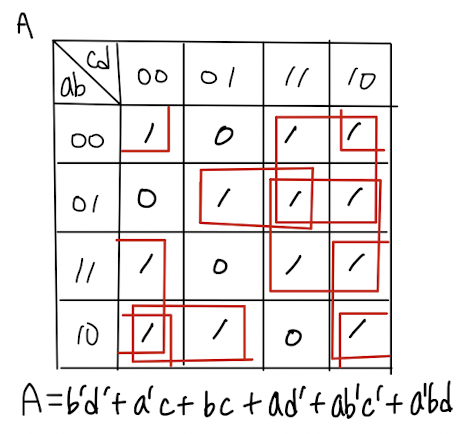 A
cd
ab
00 01 11 10
00 1 0 1 1
01 0 1 1 1
11 1 0 1 1
10 1 1 0 1
A=b'd'+a'c+bc+ad'+ab'c'+a'bd